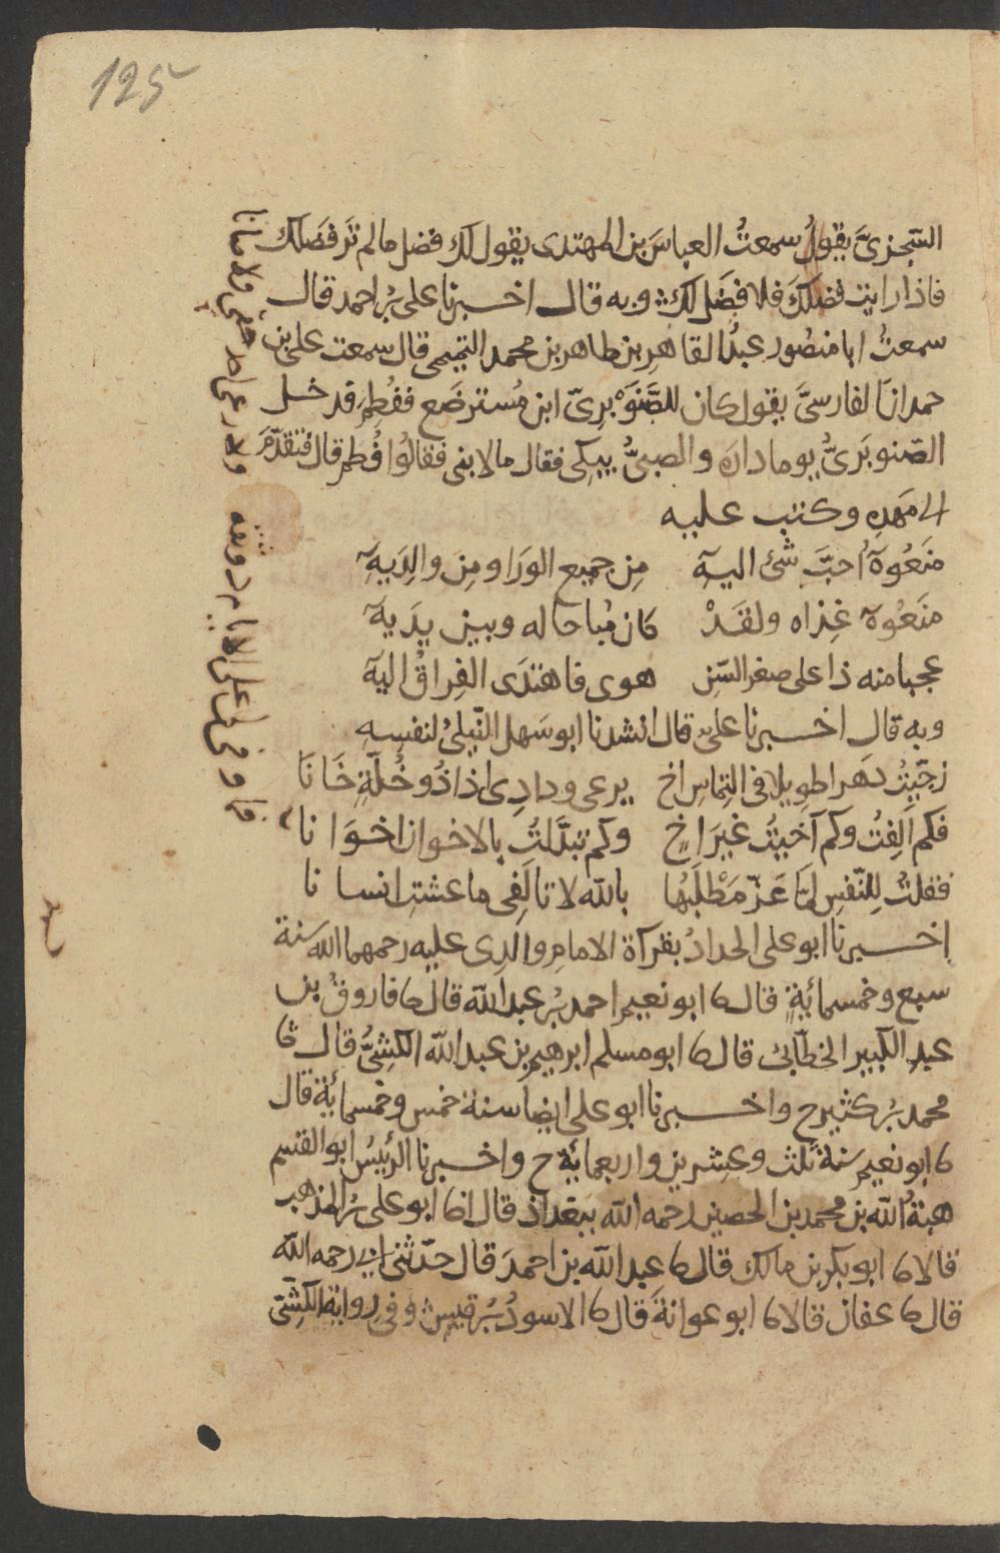 125
السّجزىَّ يقولُ سمعتُ العباسَ بن المهتدى يقول لك فضل ما لم تر فضلك
فاذا رايت فضلكَ فلا فضَل لك وبه قال اخبرنا على بْنُ احمد قال
سمعتُ ابا منصُور عبدُ القاهِر بن طاهر بن محمد التميمى قال سمعت على بن
حمدانَ الفارسىَّ يقول كان للصَّنَوْبرِىّ ابن مُسترضَع ففُطِمَ فدخل
الصّنوبَرىُّ يوما داره والصبىُّ يبكى فقال ما لابنى فقالُوا فُطِم قال فتقدّمَ
الى مَهدِه وكتب عليه
منَعُوهُ اُحبَّ شئ اليهِ مِن جميع الورَا ومِن والِدَيهِ
منَعُوهُ غِذاه ولقَدْ كان مُباحا له وبين يدَيهِ
عجبا منه ذا على صغر السّنِ هوى فاهتدَى الفِراقُ اليهِ
وبه قال اخبرنا علىٌّ قال انشدنا ابو سَهل النّيلىُّ لنفسِهِ
زجّيتُ دهرا طويلا فى التِماسِ اخ يرعى ودادِى اذا ذُو خُلّةٍ خَانَا
فكم اَلِفتُ وكم آخيتُ غيرَ اخٍ وكم تبدَّلتُ بالاخوان اخوَانا
فقلتُ لِلنّفسِ لمّا عَزّ مَطْلَبُها بالله لا تالَفِى ما عشتِ انسانا
اخبرنا ابو على الحدادُ بقرآة الامامِ والدِى عليه رحمهما الله سنة
سبع وخمسمائةٍ قال ثنا ابو نعيم احمد بْنُ عبد الله قال ثنا فاروقُ بن
عبد الكبير الخطّابىّ قال ثنا ابو مسلم ابرهيم بن عبد الله الكشِىُّ قال ثنا
محمد بْنُ كثير ح واخبرنا ابو على ايضا سنة خمس وخمسمائة قال
ثنا ابو نعيم سنة ثلث وعِشرين واربعمائة ح واخبرنا الرئيسُ ابو القسم
هبةُ الله بن محمد بن الحصين رحمه الله ببغداذ قال انا ابو على بْنُ المذهب
قالا ثنا ابو بكر بن مالك قال ثنا عبد الله بن احمدَ قال حدّثنى ابى رحمه الله
قال ثنا عفان قالا ثنا ابو عوانة قال ثنا الاسودُ بْنُ قيس وفى رواية الكشّىّ